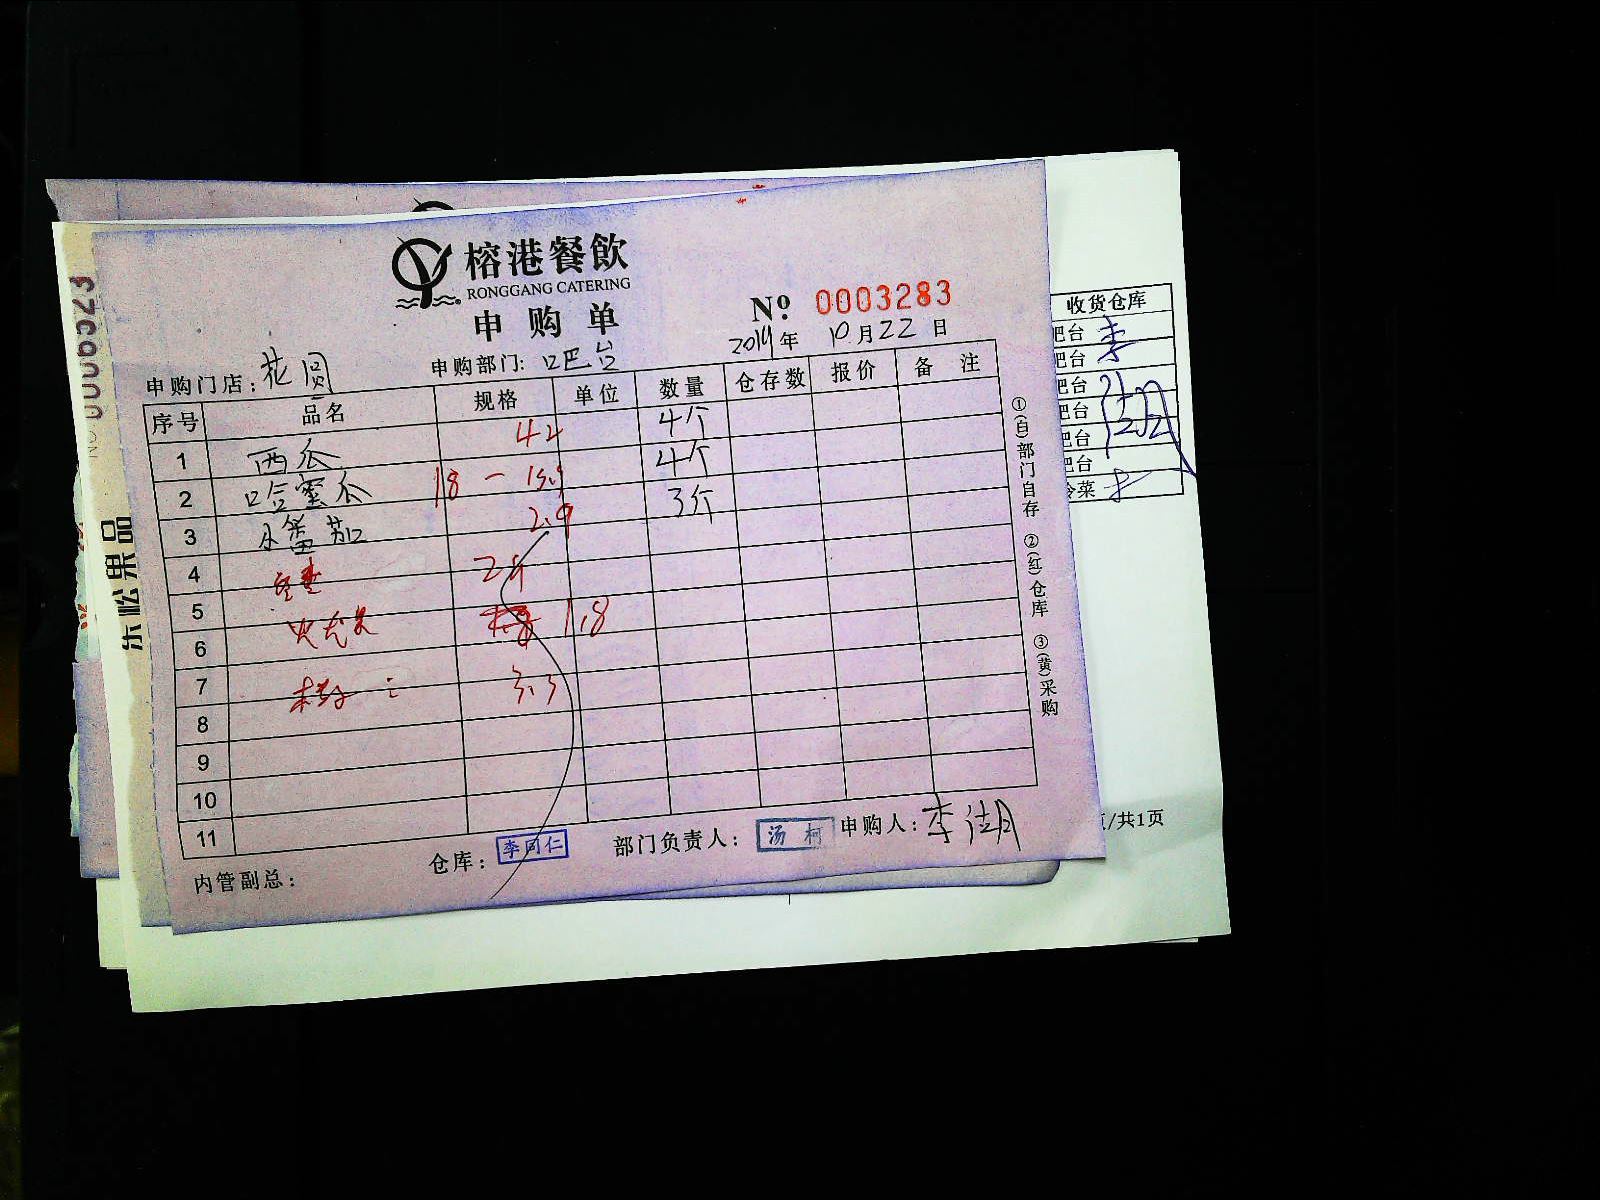 榕港餐飲
RONGGANG CATERING
申购单
Nº 0003283
2019年 10月22日
申购门店: 花园
申购部门: 吧台
序号 品名 规格 单位 数量 仓存数 报价 备注
1 西瓜 42 4个
2 哈蜜瓜 18 - 15.9 4个
3 小番茄 2.9 3个
4
5 火龙果 1.8
6
7 3.3
8
9
10
11
①(白)部门自存 ②(红)仓库 ③(黄)采购
内管副总:
仓库: 李同仁
部门负责人: 汤柯
申购人: 李
0006523
乐松果品
收货仓库
吧台 李
吧台
吧台
吧台
吧台
吧台
冷菜
页/共1页